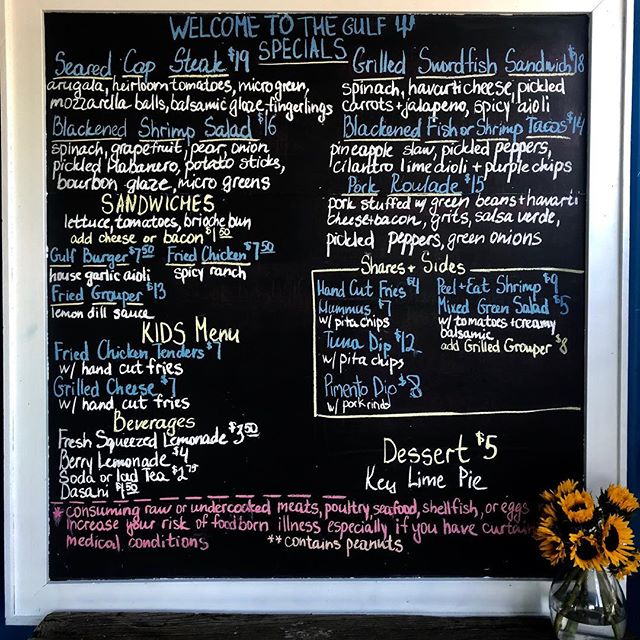 WELCOME TO THE GULF
SPECIALS
Seared Cap Steak $19
arugala, heirloom tomatoes, micro green,
mozzarella balls, balsamic glaze, fingerlings
Blackened Shrimp Salad $16
spinach, grapefruit, pear, onion
pickled Habanero, potato sticks,
bourbon glaze, micro greens
SANDWICHES
lettuce, tomatoes, brioche bun
add cheese or bacon $1.50
Gulf Burger $7.50 Fried Chicken $7.50
house garlic aioli spicy ranch
Fried Grouper $13
lemon dill sauce
KIDS Menu
Fried Chicken Tenders $7
w/ hand cut fries
Grilled Cheese $7
w/ hand cut fries
Beverages
Fresh Squeezed Lemonade $3.50
Berry Lemonade $4
Soda or Iced Tea $2.75
Dasani $1.50
Grilled Swordfish Sandwich $18
spinach, havarti cheese, pickled
carrots + jalapeno, spicy aioli
Blackened Fish or Shrimp Tacos $14
pineapple slaw, pickled peppers,
cilantro lime aioli + purple chips
Pork Roulade $15
pork stuffed w/ green beans + havarti
cheese + bacon, grits, salsa verde,
pickled peppers, green onions
Shares + Sides
Hand Cut Fries $4
Hummus $7
w/ pita chips
Tuna Dip $12
w/ pita chips
Pimento Dip $8
w/ pork rinds
Peel + Eat Shrimp $9
Mixed Green Salad $5
w/ tomatoes + creamy
balsamic
add Grilled Grouper $8
Dessert $5
Key Lime Pie
* consuming raw or undercooked meats, poultry, seafood, shellfish, or eggs
increase your risk of foodborn illness especially if you have curtain
medical conditions **contains peanuts